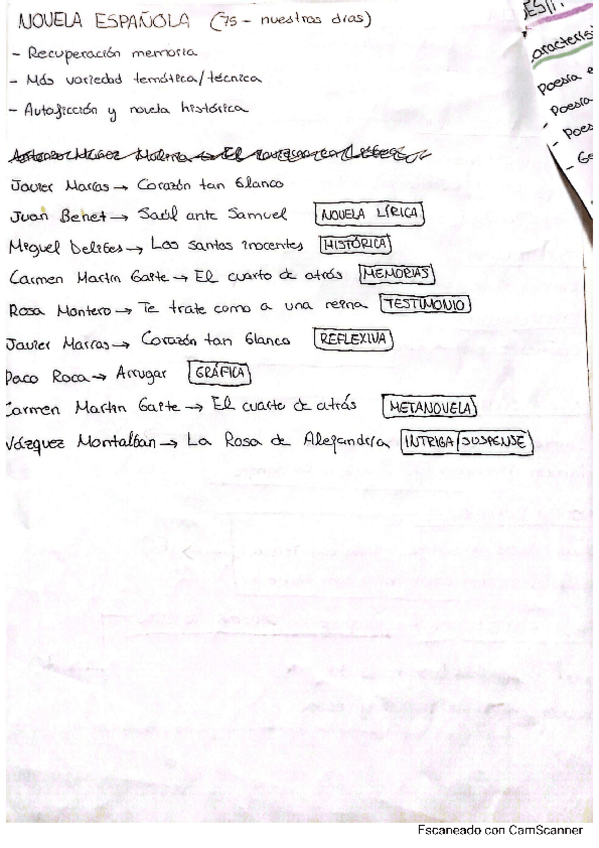 NOVELA ESPAÑOLA (75 - nuestros días)
- Recuperación memoria
- Más variedad temática/técnica
- Autoficción y novela histórica
Antonio Muñoz Molina → El
Javier Marías → Corazón tan blanco
Juan Benet → Saúl ante Samuel NOVELA LÍRICA
Miguel Delibes → Los santos inocentes HISTÓRICA
Carmen Martín Gaite → El cuarto de atrás MEMORIAS
Rosa Montero → Te trate como a una reina TESTIMONIO
Javier Marías → Corazón tan blanco REFLEXIVA
Paco Roca → Arrugar GRÁFICA
Carmen Martín Gaite → El cuarto de atrás METANOVELA
Vázquez Montalbán → La Rosa de Alejandría INTRIGA/SUSPENSE
Poesía e
Poesía
- Poes
Escaneado con CamScanner